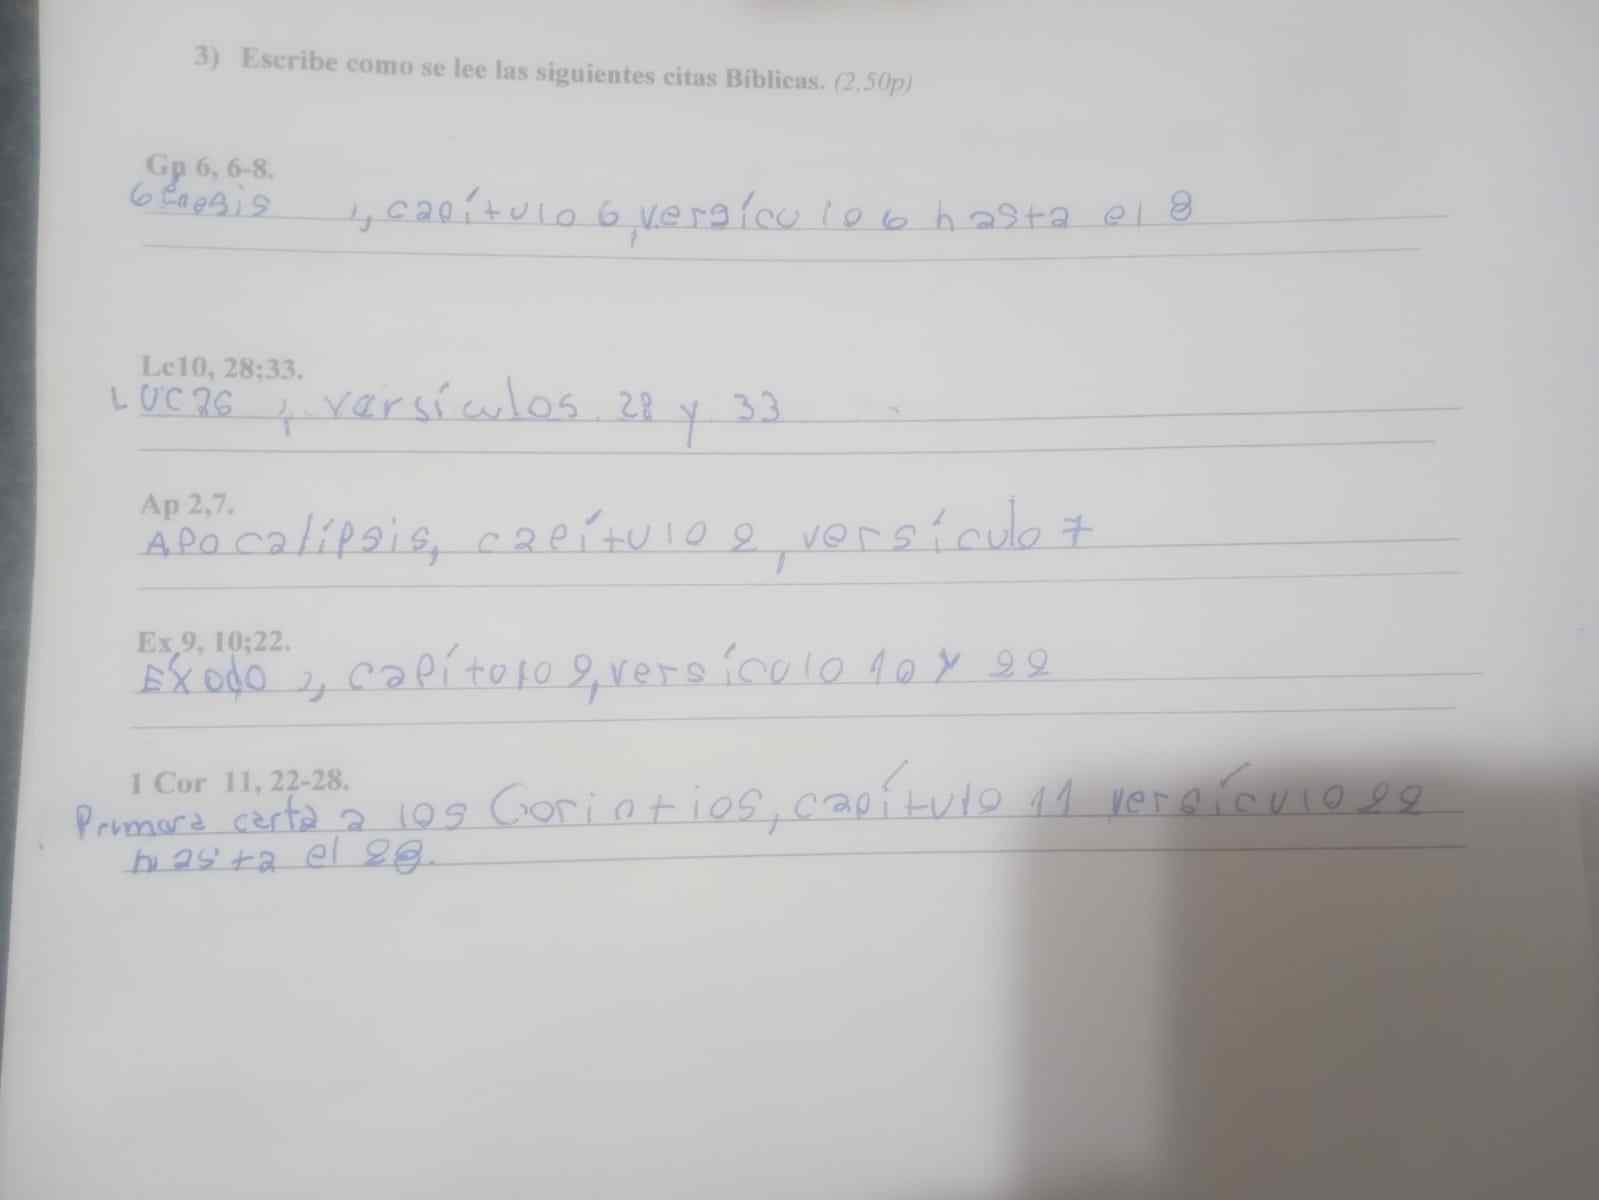 3) Escribe como se lee las siguientes citas Bíblicas. (2,50p)
Gn 6, 6-8.
Génesis , capítulo 6, versículo 6 hasta el 8
Lc10, 28;33.
Lucas , versículos 28 y 33
Ap 2,7.
Apocalípsis, capítulo 2, versículo 7
Ex 9, 10;22.
Éxodo , capítolo 9, versículo 10 y 22
1 Cor 11, 22-28.
Primera carta a los Corintios, capítulo 11 versículo 22
hasta el 28.